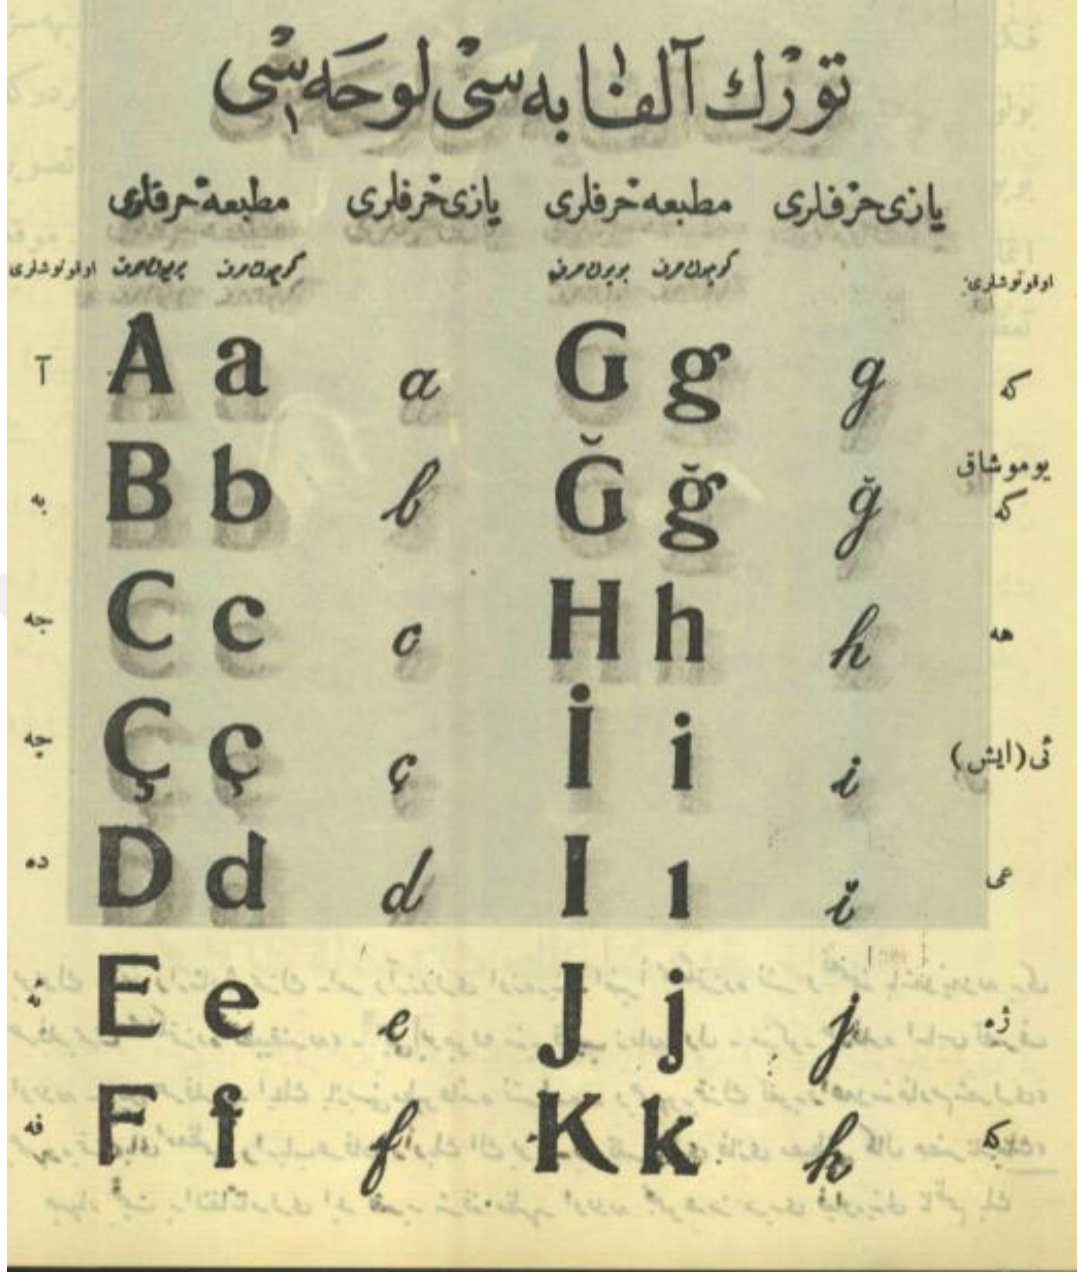 تورك آلفابه سی لوحه سی
یازی حرفلری مطبعه حرفلری یازی حرفلری مطبعه حرفلری
اوقونوشلری كوچوك حرف بویوك حرف كوچوك حرف بویوك حرف اوقونوشلری
آ A a a G g g كه
به B b b Ğ ğ ğ یوموشاق كه
جه C c c H h h هه
چه Ç ç ç İ i i ئی (ایش)
ده D d d I ı ĭ عی
ئه E e e J j j ژه
فه F f f K k k كه